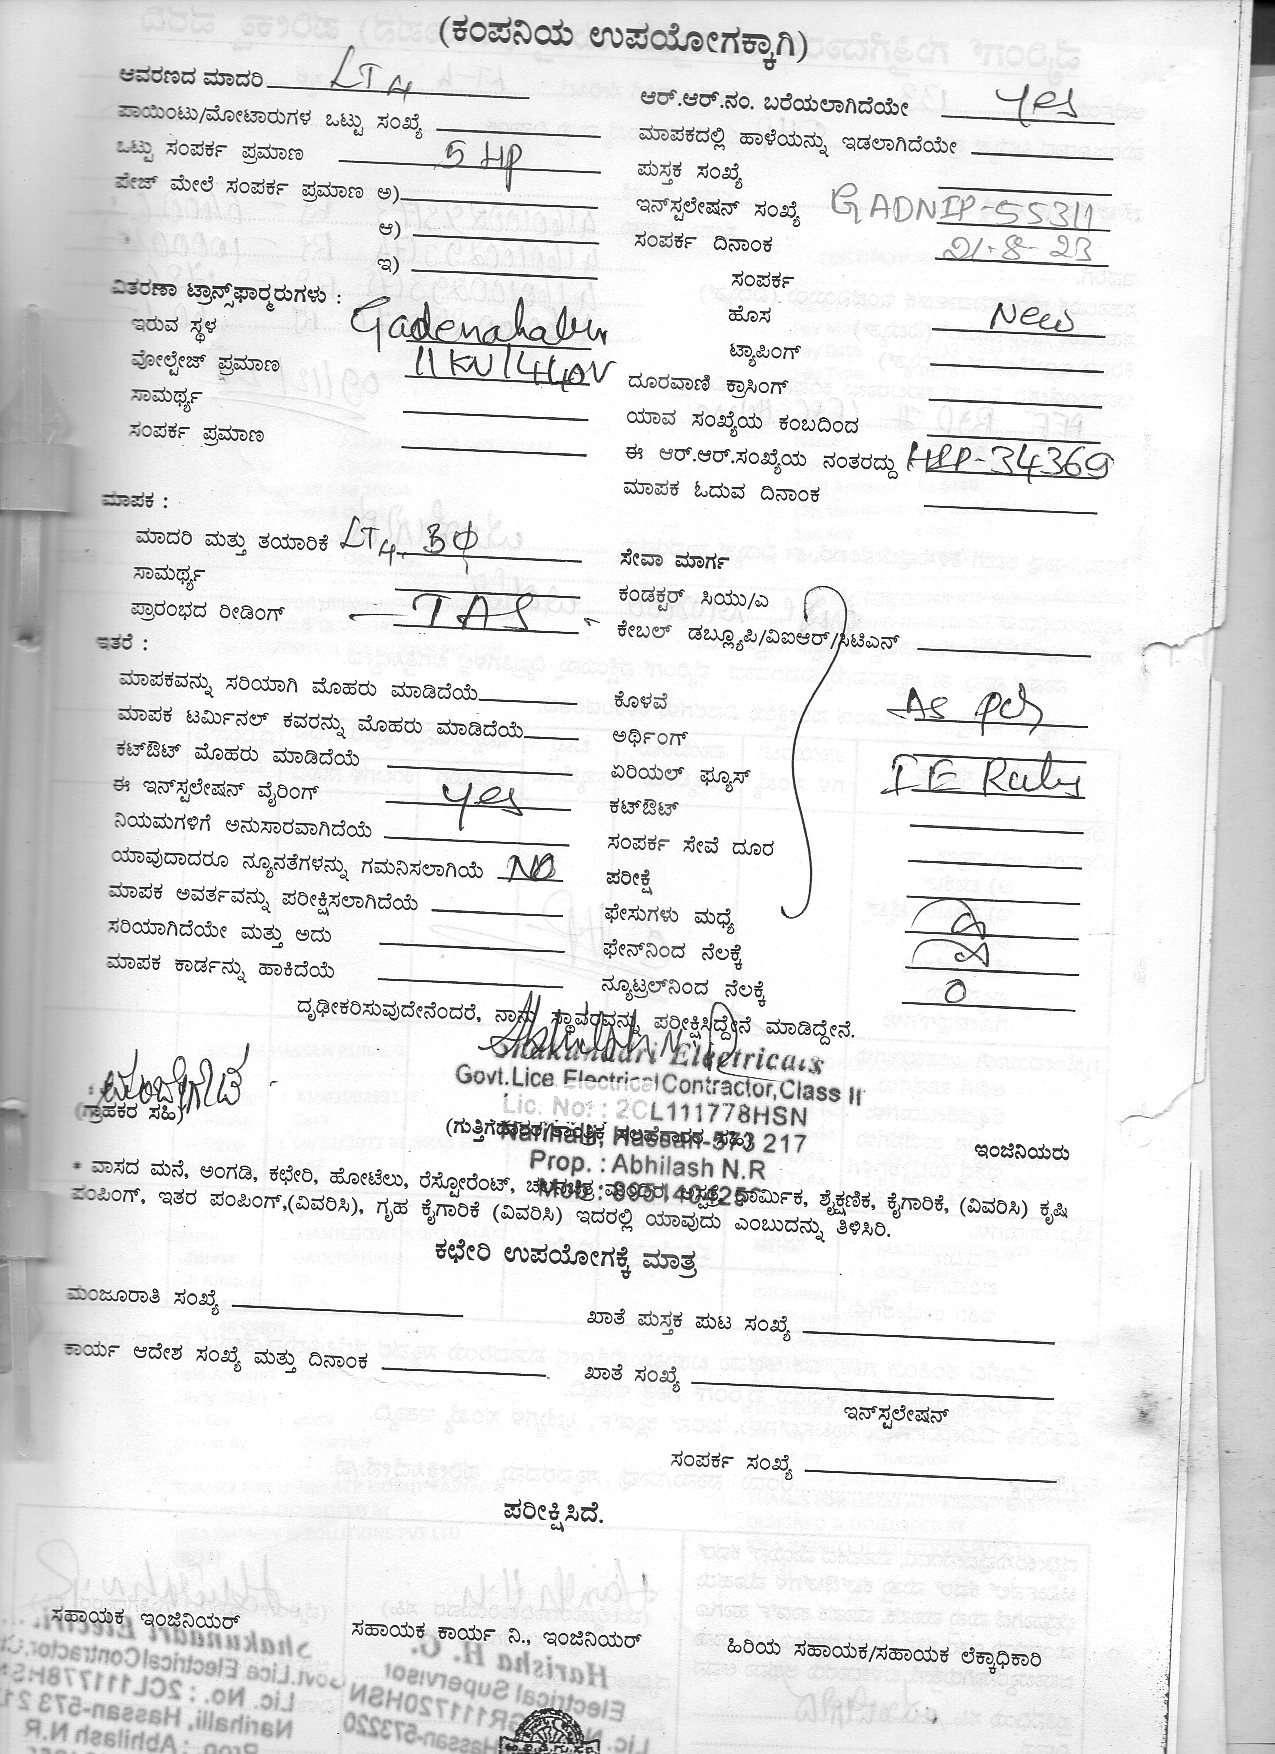 (ಕಂಪನಿಯ ಉಪಯೋಗಕ್ಕಾಗಿ)
ಆವರಣದ ಮಾದರಿ LT4
ಪಾಯಿಂಟು/ಮೋಟಾರುಗಳ ಒಟ್ಟು ಸಂಖ್ಯೆ
ಒಟ್ಟು ಸಂಪರ್ಕ ಪ್ರಮಾಣ 5 HP
ಪೇಜ್ ಮೇಲೆ ಸಂಪರ್ಕ ಪ್ರಮಾಣ ಅ)
ಆ)
ಇ)
ವಿತರಣಾ ಟ್ರಾನ್ಸ್‌ಫಾರ್ಮರುಗಳು :
ಇರುವ ಸ್ಥಳ
ವೋಲ್ಟೇಜ್ ಪ್ರಮಾಣ 11KV/440V
ಸಾಮರ್ಥ್ಯ
ಸಂಪರ್ಕ ಪ್ರಮಾಣ
ಆರ್.ಆರ್.ನಂ. ಬರೆಯಲಾಗಿದೆಯೇ Yes
ಮಾಪಕದಲ್ಲಿ ಹಾಳೆಯನ್ನು ಇಡಲಾಗಿದೆಯೇ
ಪುಸ್ತಕ ಸಂಖ್ಯೆ
ಇನ್‌ಸ್ಟಲೇಷನ್ ಸಂಖ್ಯೆ GADNIP-55311
ಸಂಪರ್ಕ ದಿನಾಂಕ 21-8-23
ಸಂಪರ್ಕ
ಹೊಸ New
ಟ್ಯಾಪಿಂಗ್
ದೂರವಾಣಿ ಕ್ರಾಸಿಂಗ್
ಯಾವ ಸಂಖ್ಯೆಯ ಕಂಬದಿಂದ
ಈ ಆರ್.ಆರ್.ಸಂಖ್ಯೆಯ ನಂತರದ್ದು 34369
ಮಾಪಕ ಓದುವ ದಿನಾಂಕ
ಮಾಪಕ :
ಮಾದರಿ ಮತ್ತು ತಯಾರಿಕೆ LT4, 3φ
ಸಾಮರ್ಥ್ಯ
ಪ್ರಾರಂಭದ ರೀಡಿಂಗ್ - TAS -
ಇತರೆ :
ಮಾಪಕವನ್ನು ಸರಿಯಾಗಿ ಮೊಹರು ಮಾಡಿದೆಯೆ
ಮಾಪಕ ಟರ್ಮಿನಲ್ ಕವರನ್ನು ಮೊಹರು ಮಾಡಿದೆಯೆ
ಕಟ್‌ಔಟ್ ಮೊಹರು ಮಾಡಿದೆಯೆ
ಈ ಇನ್‌ಸ್ಟಲೇಷನ್ ವೈರಿಂಗ್ yes
ನಿಯಮಗಳಿಗೆ ಅನುಸಾರವಾಗಿದೆಯೆ
ಯಾವುದಾದರೂ ನ್ಯೂನತೆಗಳನ್ನು ಗಮನಿಸಲಾಗಿಯೆ NO
ಮಾಪಕ ಅವರ್ತವನ್ನು ಪರೀಕ್ಷಿಸಲಾಗಿದೆಯೆ
ಸರಿಯಾಗಿದೆಯೇ ಮತ್ತು ಅದು
ಮಾಪಕ ಕಾರ್ಡನ್ನು ಹಾಕಿದೆಯೆ
ಸೇವಾ ಮಾರ್ಗ
ಕಂಡಕ್ಟರ್ ಸಿಯು/ಎ
ಕೇಬಲ್ ಡಬ್ಲ್ಯೂಪಿ/ವಿಐಆರ್/ಸಿಟಿಎನ್
ಕೊಳವೆ As per
ಅರ್ಥಿಂಗ್
ಏರಿಯಲ್ ಫ್ಯೂಸ್ IE Rules
ಕಟ್‌ಔಟ್
ಸಂಪರ್ಕ ಸೇವೆ ದೂರ
ಪರೀಕ್ಷೆ
ಫೇಸುಗಳು ಮಧ್ಯೆ
ಫೇನ್‌ನಿಂದ ನೆಲಕ್ಕೆ
ನ್ಯೂಟ್ರಲ್‌ನಿಂದ ನೆಲಕ್ಕೆ 0
ದೃಢೀಕರಿಸುವುದೇನೆಂದರೆ, ನಾನು ಸ್ಥಾವರವನ್ನು ಪರೀಕ್ಷಿಸಿದ್ದೇನೆ ಮಾಡಿದ್ದೇನೆ.
Shakundari Electricals
Govt.Lice Electrical Contractor,Class II
Lic. No. : 2CL111778HSN
(ಗ್ರಾಹಕರ ಸಹಿ)
Narihalli, Hassan-573 217
ಇಂಜಿನಿಯರು
Prop. : Abhilash N.R
* ವಾಸದ ಮನೆ, ಅಂಗಡಿ, ಕಛೇರಿ, ಹೋಟೆಲು, ರೆಸ್ಟೋರೆಂಟ್, ಧಾರ್ಮಿಕ, ಶೈಕ್ಷಣಿಕ, ಕೈಗಾರಿಕೆ, (ವಿವರಿಸಿ) ಕೃಷಿ
ಪಂಪಿಂಗ್, ಇತರ ಪಂಪಿಂಗ್,(ವಿವರಿಸಿ), ಗೃಹ ಕೈಗಾರಿಕೆ (ವಿವರಿಸಿ) ಇದರಲ್ಲಿ ಯಾವುದು ಎಂಬುದನ್ನು ತಿಳಿಸಿರಿ.
ಕಛೇರಿ ಉಪಯೋಗಕ್ಕೆ ಮಾತ್ರ
ಮಂಜೂರಾತಿ ಸಂಖ್ಯೆ
ಖಾತೆ ಪುಸ್ತಕ ಪುಟ ಸಂಖ್ಯೆ
ಕಾರ್ಯ ಆದೇಶ ಸಂಖ್ಯೆ ಮತ್ತು ದಿನಾಂಕ
ಖಾತೆ ಸಂಖ್ಯೆ
ಇನ್‌ಸ್ಟಲೇಷನ್
ಸಂಪರ್ಕ ಸಂಖ್ಯೆ
ಪರೀಕ್ಷಿಸಿದೆ.
ಸಹಾಯಕ ಇಂಜಿನಿಯರ್
ಸಹಾಯಕ ಕಾರ್ಯ ನಿ., ಇಂಜಿನಿಯರ್
ಹಿರಿಯ ಸಹಾಯಕ/ಸಹಾಯಕ ಲೆಕ್ಕಾಧಿಕಾರಿ